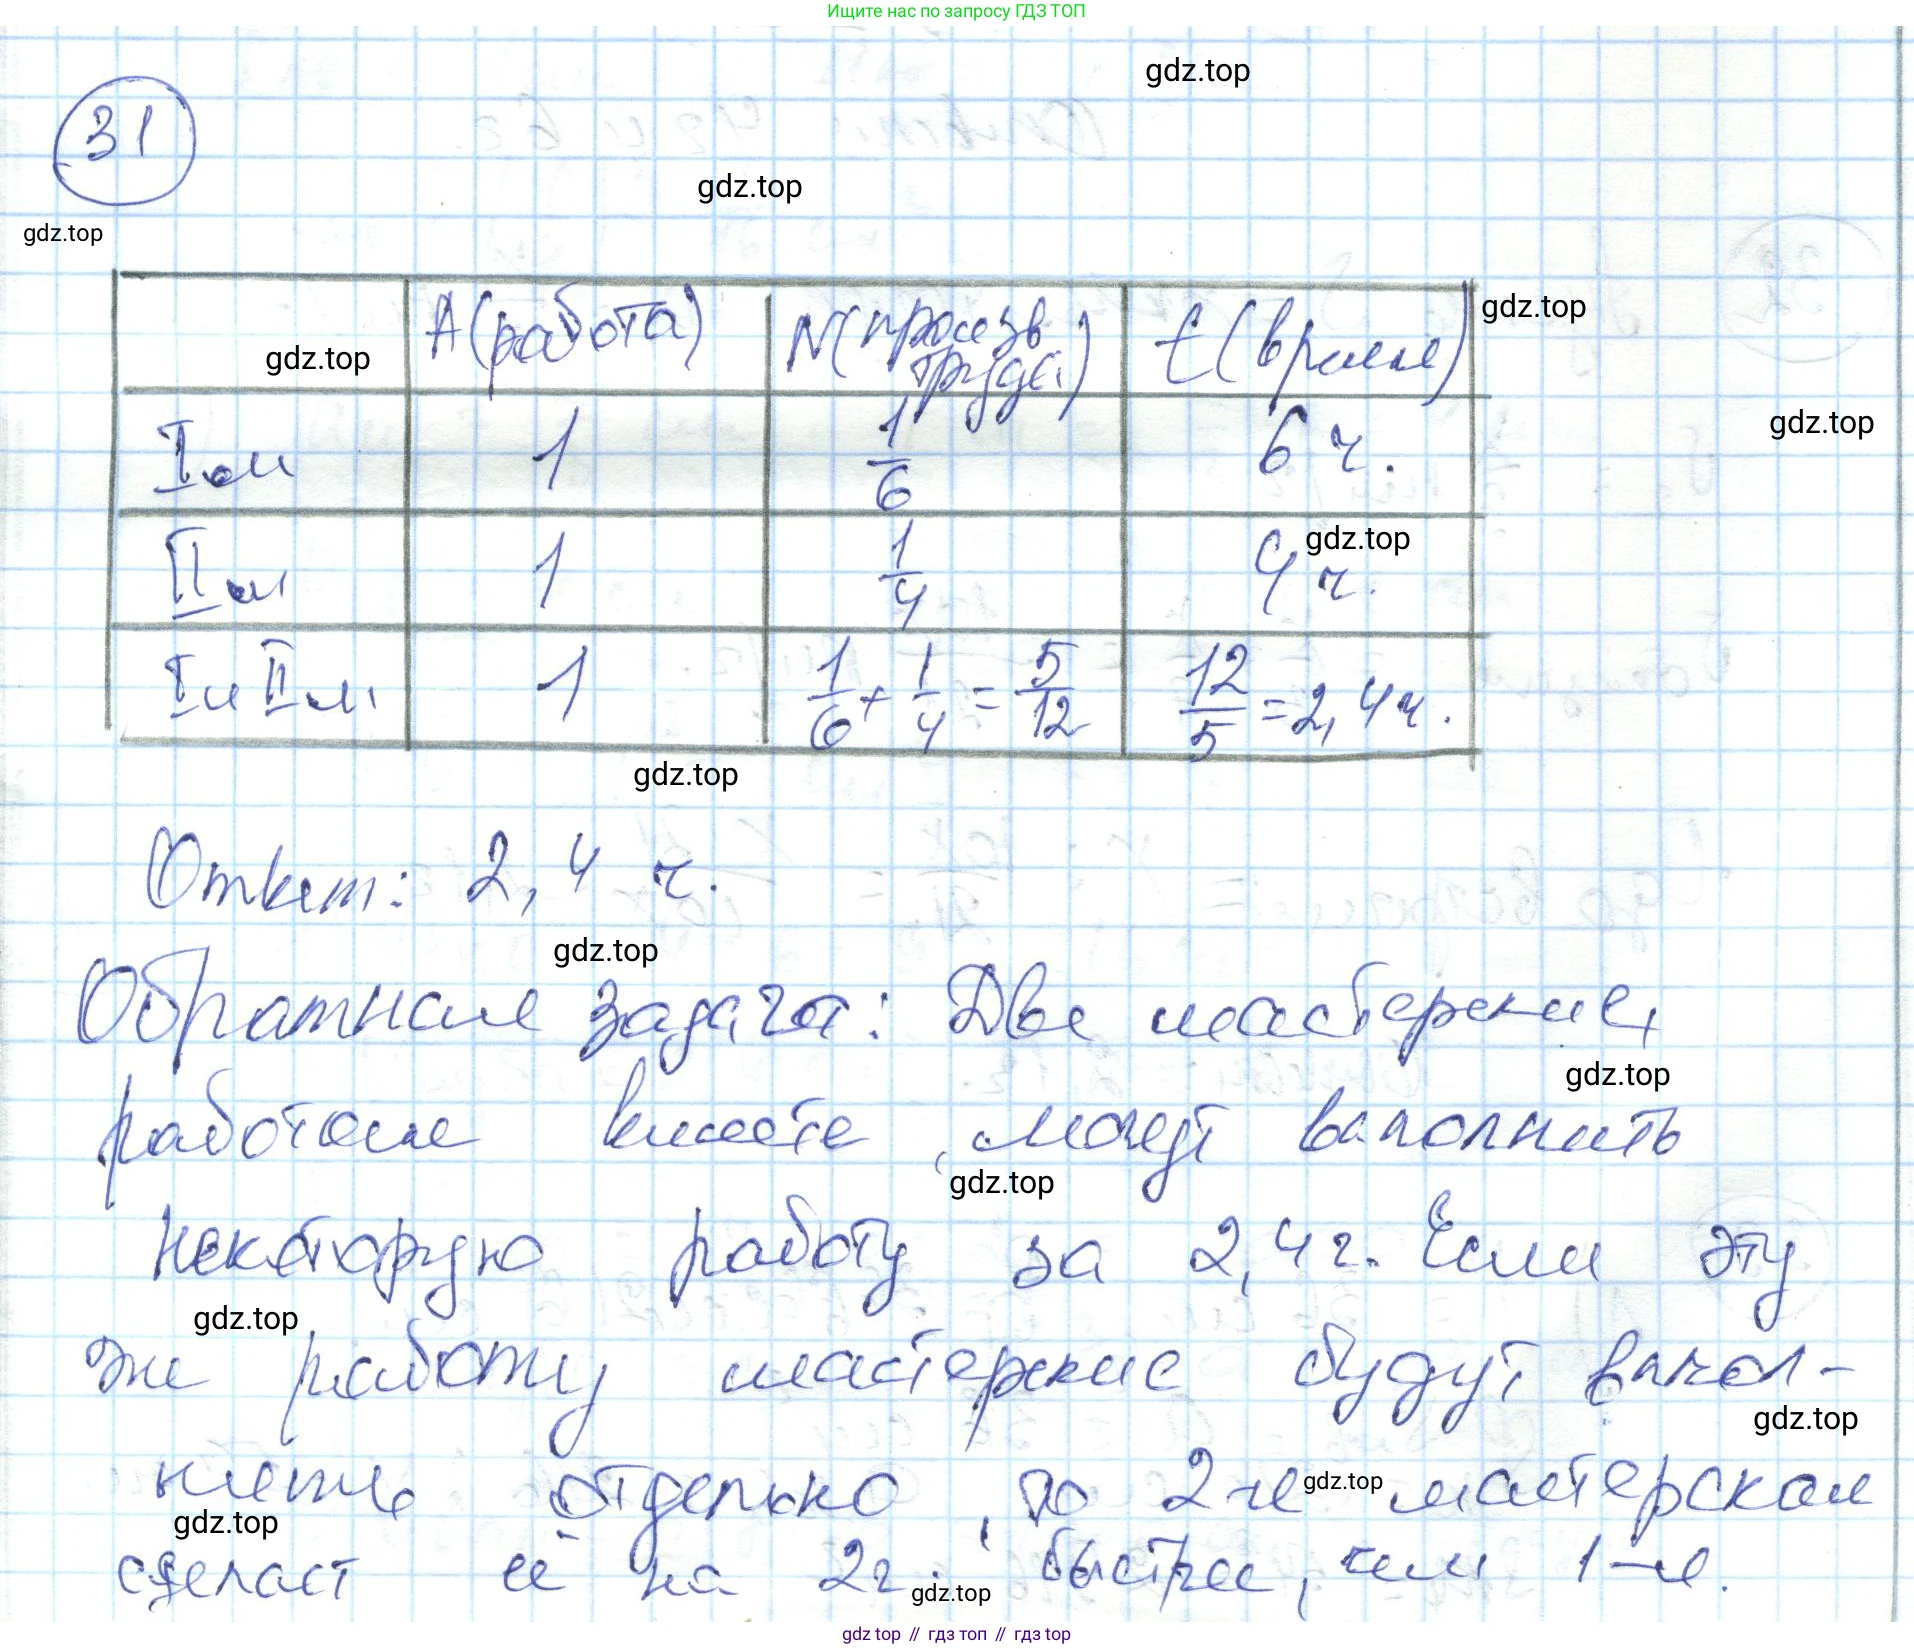 Ищите нас по запросу ГДЗ ТОП
gdz.top
31
gdz.top
gdz.top
A (работа) N (произв труда) t (время)
gdz.top
gdz.top
I м 1 1/6 6 ч.
gdz.top
II м 1 1/4 4 ч.
gdz.top
I и II м 1 1/6 + 1/4 = 5/12 12/5 = 2,4 ч.
gdz.top
Ответ: 2,4 ч.
gdz.top
Обратная задача: Две мастерские,
gdz.top
работая вместе, могут выполнить
gdz.top
некоторую работу за 2,4 ч. Если эту
gdz.top
же работу мастерские будут выпол-
gdz.top
нять отдельно, то 2-я мастерская
gdz.top
gdz.top
сделает её на 2 ч. быстрее, чем 1-я.
gdz.top
gdz.top // гдз топ // гдз top